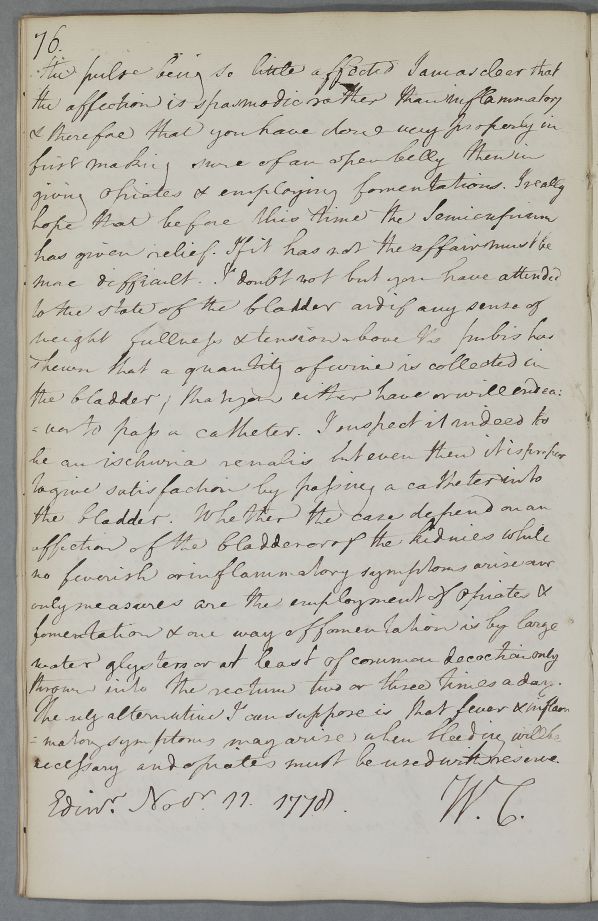 76.
The pulse being so little affected I am as clear that
the affection is spasmodic rather than inflammatory
& therefore that you have done very properly in
first making sure of an open belly then in
giving opiates & employing fomentations. I really
hope that before this time the Semicupium
has given relief. If it has not the affair must be
more difficult. I doubt not but you have attended
to the state of the bladder and if any sense of
weight fullness & tension above Os pubis has
shewn that a quantity of urine is collected in
the bladder; that you either have or will endea:
=vor to pass a catheter. I suspect it indeed to
be an ischuria renalis but even then it is proper
to give satisfaction by passing a catheter into
the bladder. Whether the case depend on an
affection of the bladder or of the kidnies while
no feverish or inflammatory symptoms arise our
only measures are the employment of opiates &
fomentation & one way of fomentation is by large
water glysters or at least of common decoction only
thrown into the rectum two or three times a day.
The only alternative I can suppose is that fever & inflam
=matory symptoms may arise when bleeding will be
necessary and opiates must be used with reserve.
Edinr. Novr. 11. 1778. W. C.